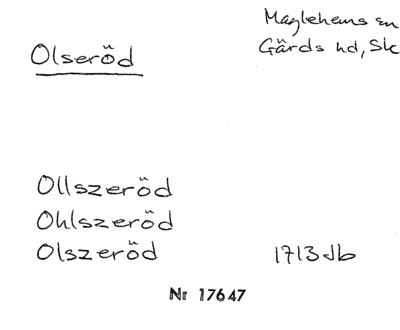 Maglehems sn
Olseröd Gärds hd, Sk
Ollszeröd
Ohlszeröd
Olszeröd 1713 Jb
Nr 17647